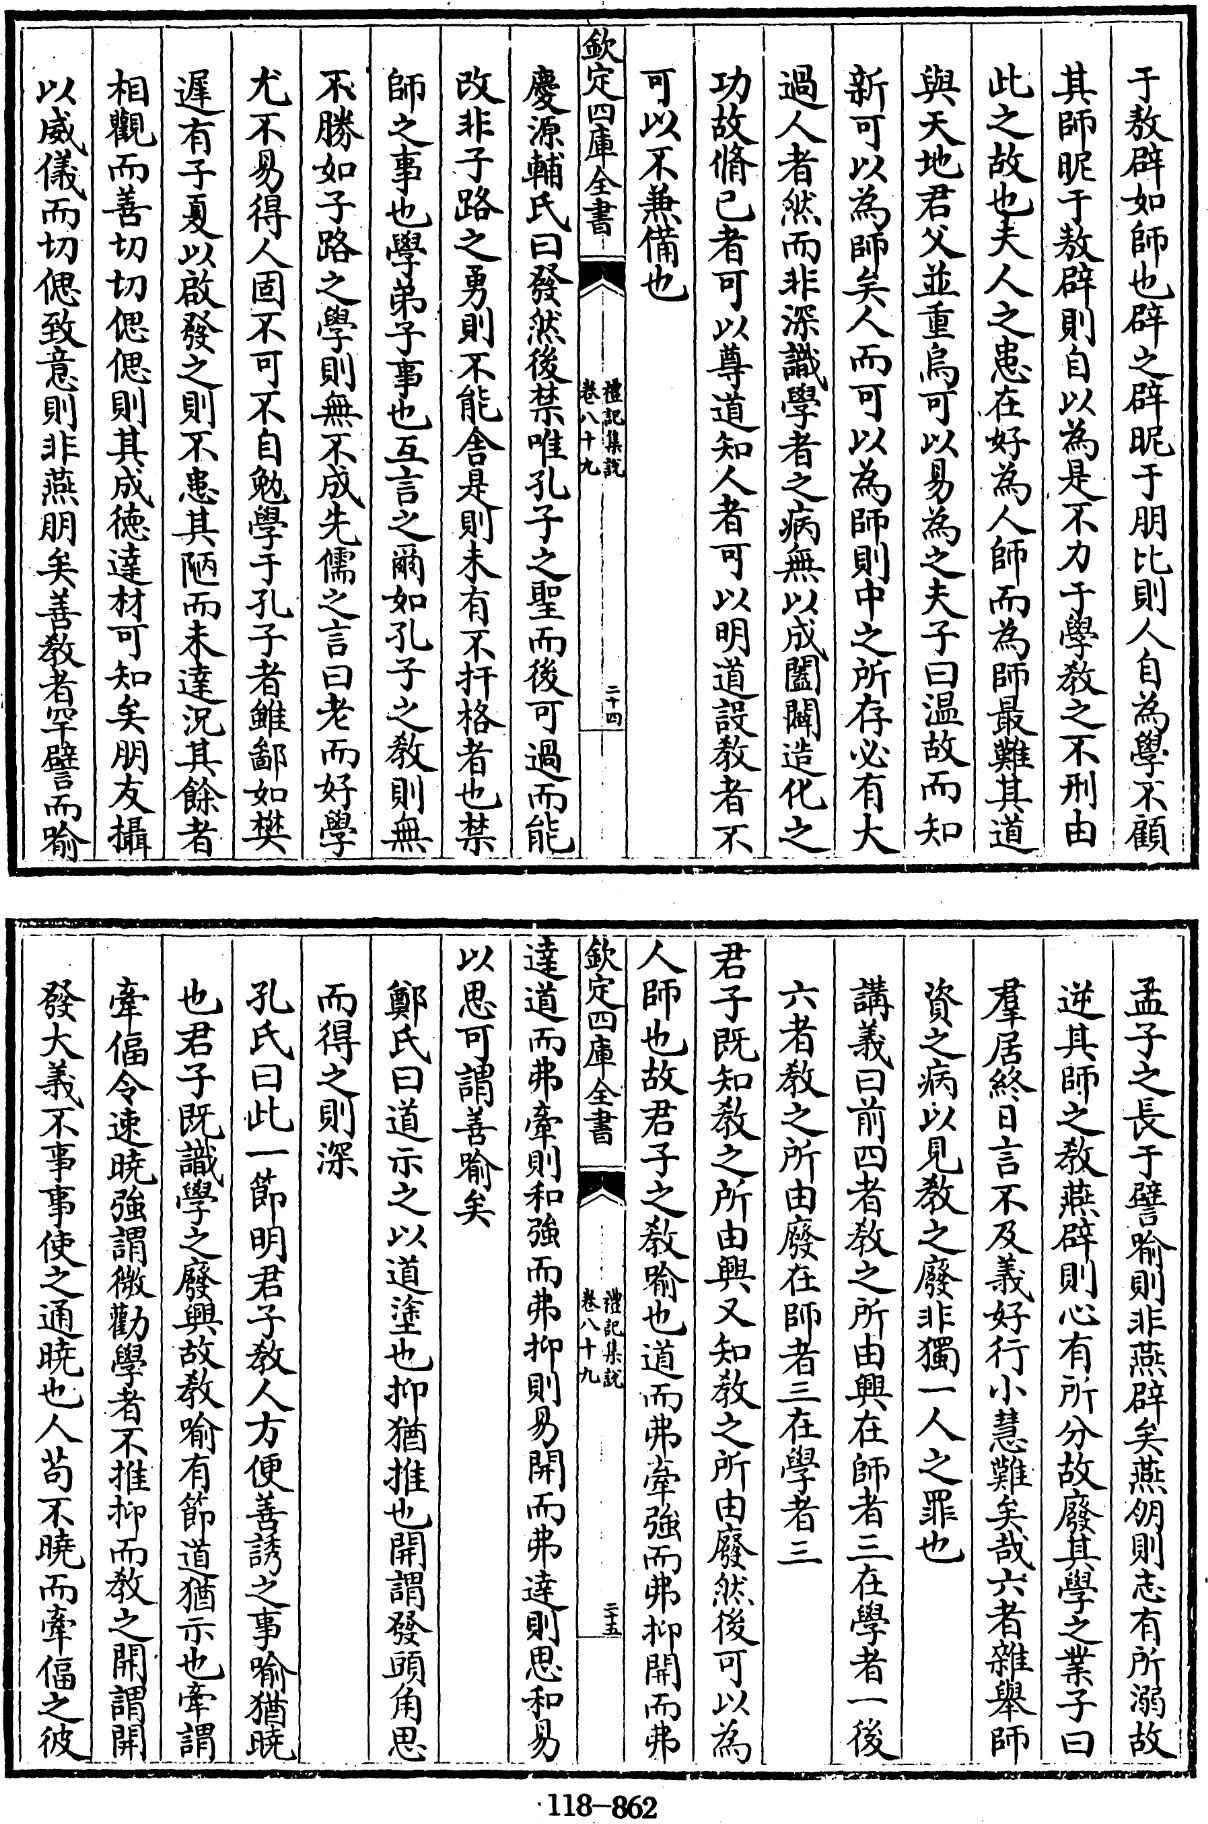 于敖辟如師也辟之辟昵于朋比則人自為學不顧
其師昵于敖辟則自以為是不力于學教之不刑由
此之故也夫人之患在好為人師而為師最難其道
與天地君父並重烏可以易為之夫子曰温故而知
新可以為師矣人而可以為師則中之所存必有大
過人者然而非深識學者之病無以成闔闢造化之
功故脩已者可以尊道知人者可以明道設教者不
可以不兼備也
欽定四庫全書
禮記集説
卷八十九
二十四
慶源輔氏曰發然後禁唯孔子之聖而後可過而能
改非子路之勇則不能舍是則未有不扞格者也禁
師之事也學弟子事也互言之爾如孔子之教則無
不勝如子路之學則無不成先儒之言曰老而好學
尤不易得人固不可不自勉學于孔子者雖鄙如樊
遲有子夏以啟發之則不患其陋而未達況其餘者
相觀而善切切偲偲則其成徳達材可知矣朋友攝
以威儀而切偲致意則非燕朋矣善教者罕譬而喻
孟子之長于譬喻則非燕辟矣燕朋則志有所溺故
逆其師之教燕辟則心有所分故廢其學之業子曰
羣居終日言不及義好行小慧難矣哉六者雜舉師
資之病以見教之廢非獨一人之罪也
講義曰前四者教之所由興在師者三在學者一後
六者教之所由廢在師者三在學者三
君子既知教之所由興又知教之所由廢然後可以為
人師也故君子之教喻也道而弗牽強而弗抑開而弗
欽定四庫全書
禮記集説
卷八十九
二十五
達道而弗牽則和強而弗抑則易開而弗達則思和易
以思可謂善喻矣
鄭氏曰道示之以道塗也抑猶推也開謂發頭角思
而得之則深
孔氏曰此一節明君子教人方便善誘之事喻猶曉
也君子既識學之廢興故教喻有節道猶示也牽謂
牽偪令速曉強謂微勸學者不推抑而教之開謂開
發大義不事事使之通曉也人苟不曉而牽偪之彼
118-862